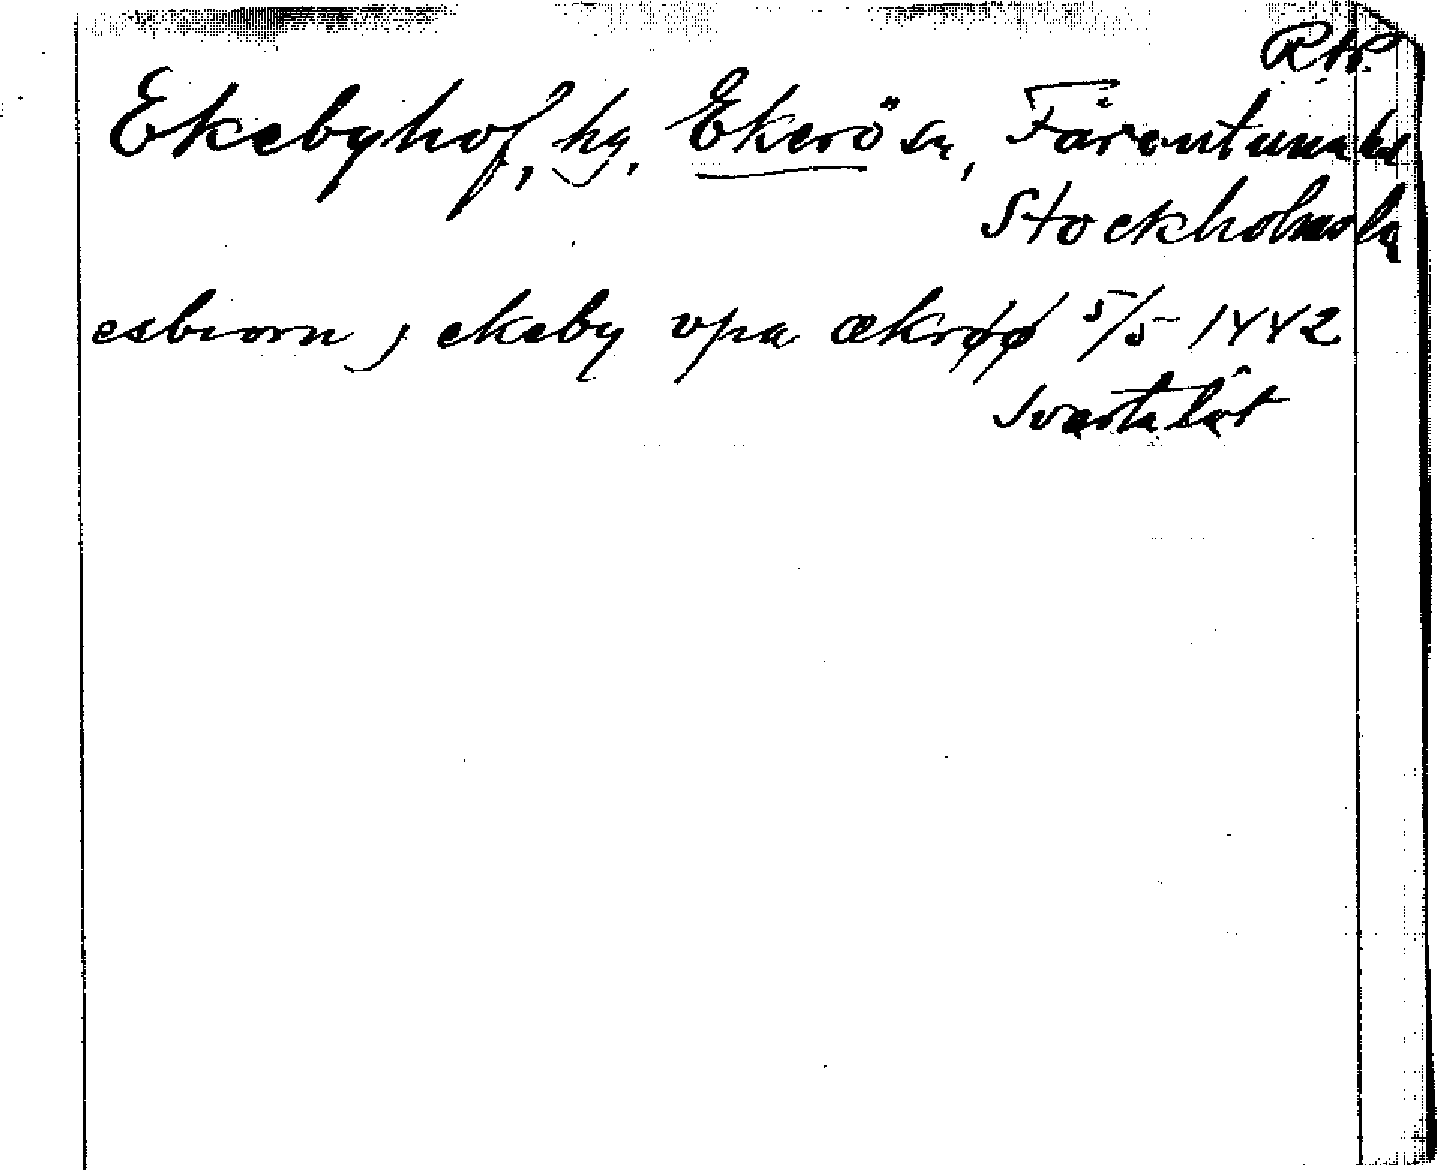 Ekebyhof, hg, Ekerö sn, Färentuna hd
Stockholms lä
esbiorn j ekeby vpa ækrøø 5/5 1442
Svartalöt